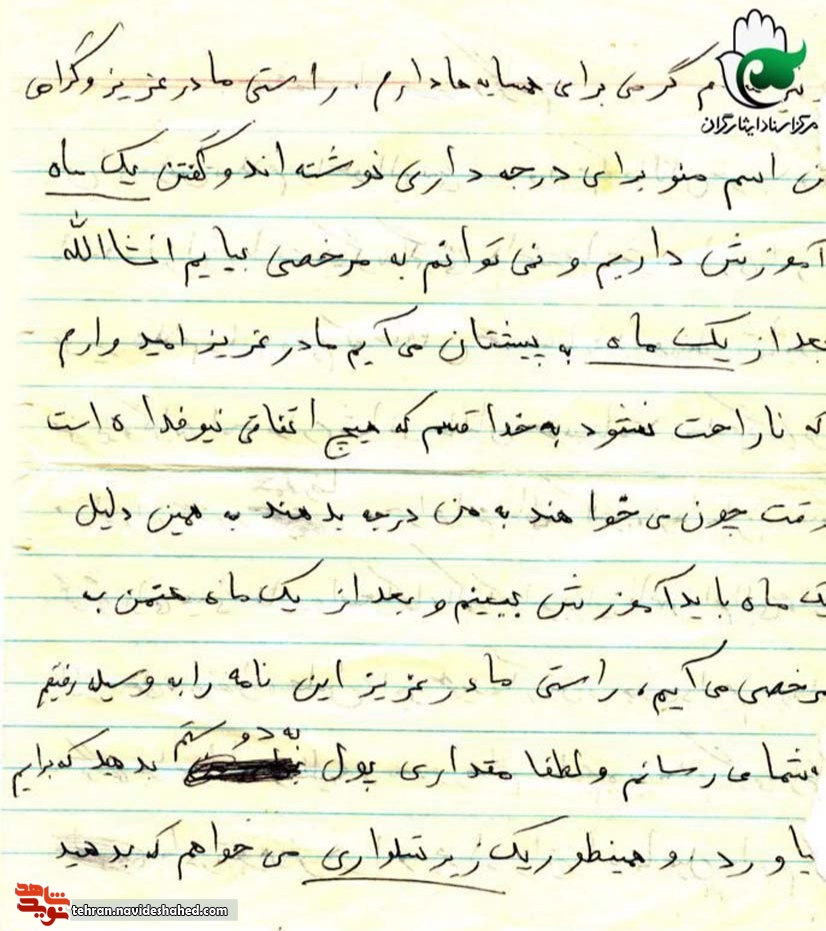 گرمی برای همسایه ها دارم . راستی مادر عزیز و گرامی
مرکز اسناد ایثارگران
اسم منو برای درجه داری نوشته اند و گفتن یک ماه
آموزش داریم و نمی توانم به مرخصی بیایم انشاالله
بعد از یک ماه به پیشتان می آیم مادر عزیز امید وارم
که ناراحت نشود به خدا قسم که هیچ اتفاقی نیوفتدا ه است
وقت چون می خواهند به من درجه بدهند به همین دلیل
یک ماه باید آموزش ببینم و بعد از یک ماه حتمن به
مرخصی می آیم، راستی مادر عزیز این نامه را به وسیله رفیقم
شما می رسانم و لطفا مقداری پول به دوستم بدهید که برایم
بیاورد . و همینطور یک زیر شلواری می خواهم که بدهید
نوید شاهد
tehran.navideshahed.com